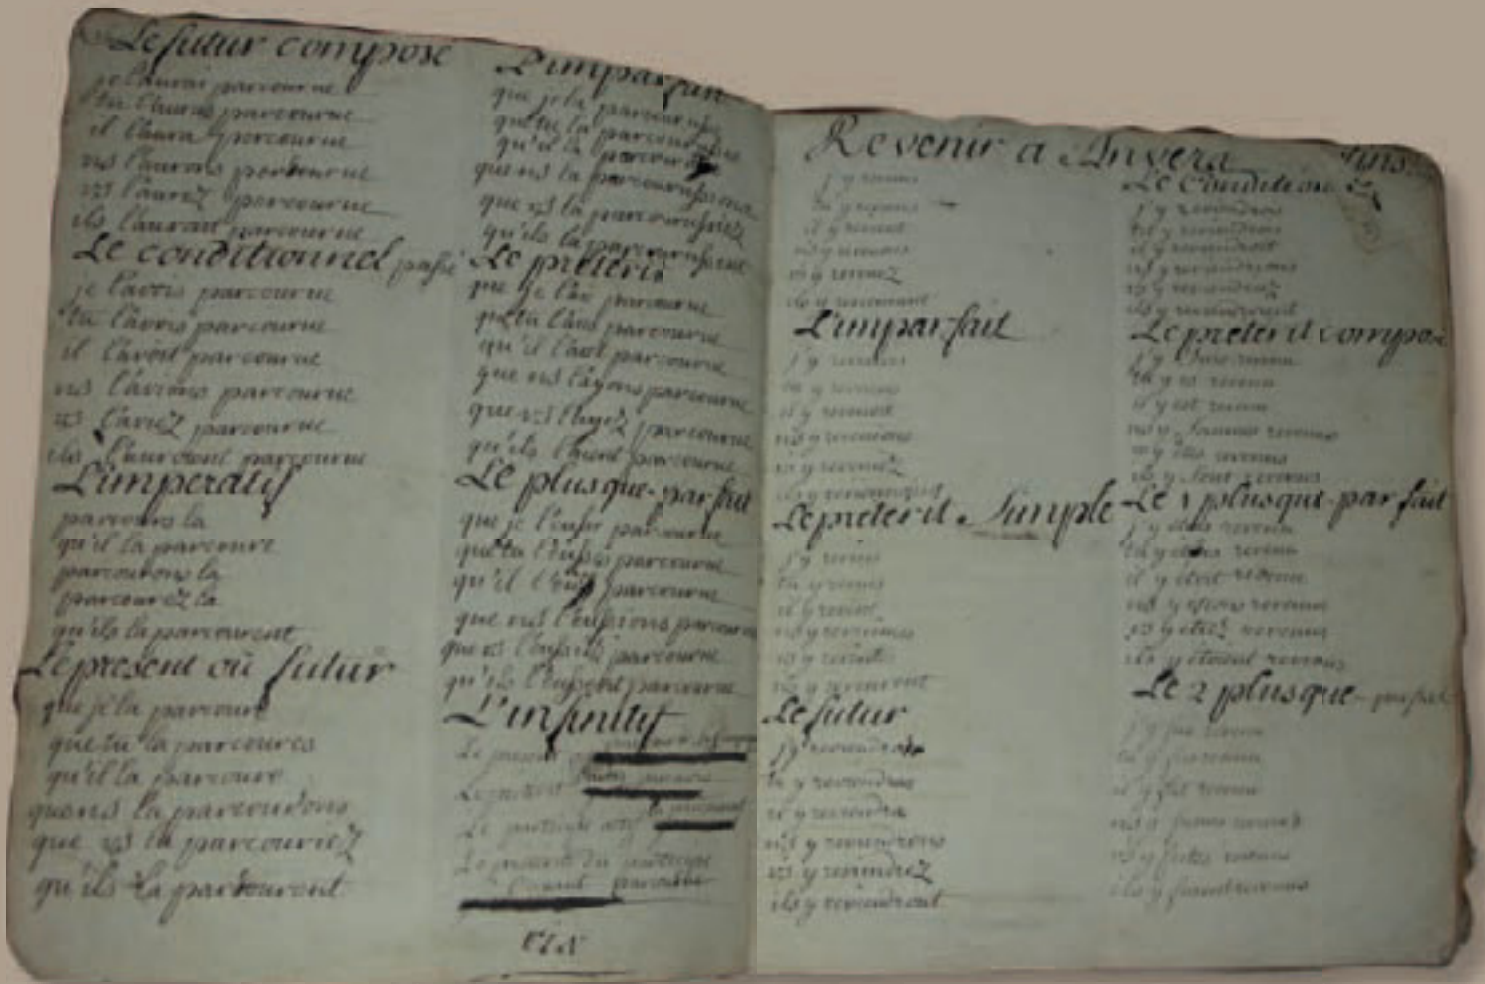 Le futur compose
je l'aurai parcourue
tu l'auras parcourue
il l'aura parcourue
ns l'aurons parcourue
vs l'aurez parcourue
ils l'auront parcourue
Le conditionnel passé
je l'avois parcourue
tu l'avois parcourue
il l'avoit parcourue
ns l'avions parcourue
vs l'aviez parcourue
ils parcourue
L'imperatif
parcours la
qu'il la parcoure
parcourons la
parcourez la
qu'ils la parcourent
Le present où futur
que je la parcoure
que tu la parcoures
qu'il la parcoure
que ns la
que vs la parcouriez
qu'ils la parcourent
L'imparfait
que je la
que tu la
qu'il la
que ns la
que vs la
qu'ils la
Le preterit
que je l'aie parcourue
que tu l'ais parcourue
qu'il l'ait parcourue
que ns l'ayons parcourue
que vs l'ayez parcourue
qu'ils l'aient parcourue
Le plusque-parfait
que je l'eusse parcourue
que tu l'eusses parcourue
qu'il parcourue
que ns l'eussions parcourue
que vs parcourue
qu'ils l'eussent parcourue
L'infinitif
Le present
Le preterit
Le participe
Le present du participe
parcourue
Revenir a Anvers
j'y reviens
tu y reviens
il y revient
ns y revenons
vs y revenez
ils y reviennent
L'imparfait
j'y revenois
tu y revenois
il y revenoit
ns y revenions
vs y reveniez
ils y revenoient
Le preterit simple
j'y revins
tu y revins
il y revint
ns y revinmes
vs y revintes
ils y revinrent
Le futur
j'y reviendrai
tu y reviendras
il y reviendra
ns y reviendrons
vs y reviendrez
ils y reviendront
Le Condition
j'y reviendrois
tu y reviendrois
il y reviendroit
ns y reviendrions
vs y reviendriez
ils y reviendroient
Le preterit compose
j'y suis revenu
tu y es revenu
il y est revenu
ns y sommes revenus
vs y êtes revenus
ils y sont revenus
Le 1 plusque-parfait
j'y étois revenu
tu y étois revenu
il y étoit revenu
ns y étions revenus
vs y étiez revenus
ils y étoient revenus
Le 2 plusque-parfait
j'y fus revenu
tu y fus revenu
il y fut revenu
ns y fumes revenus
vs y futes revenus
ils y furent revenus